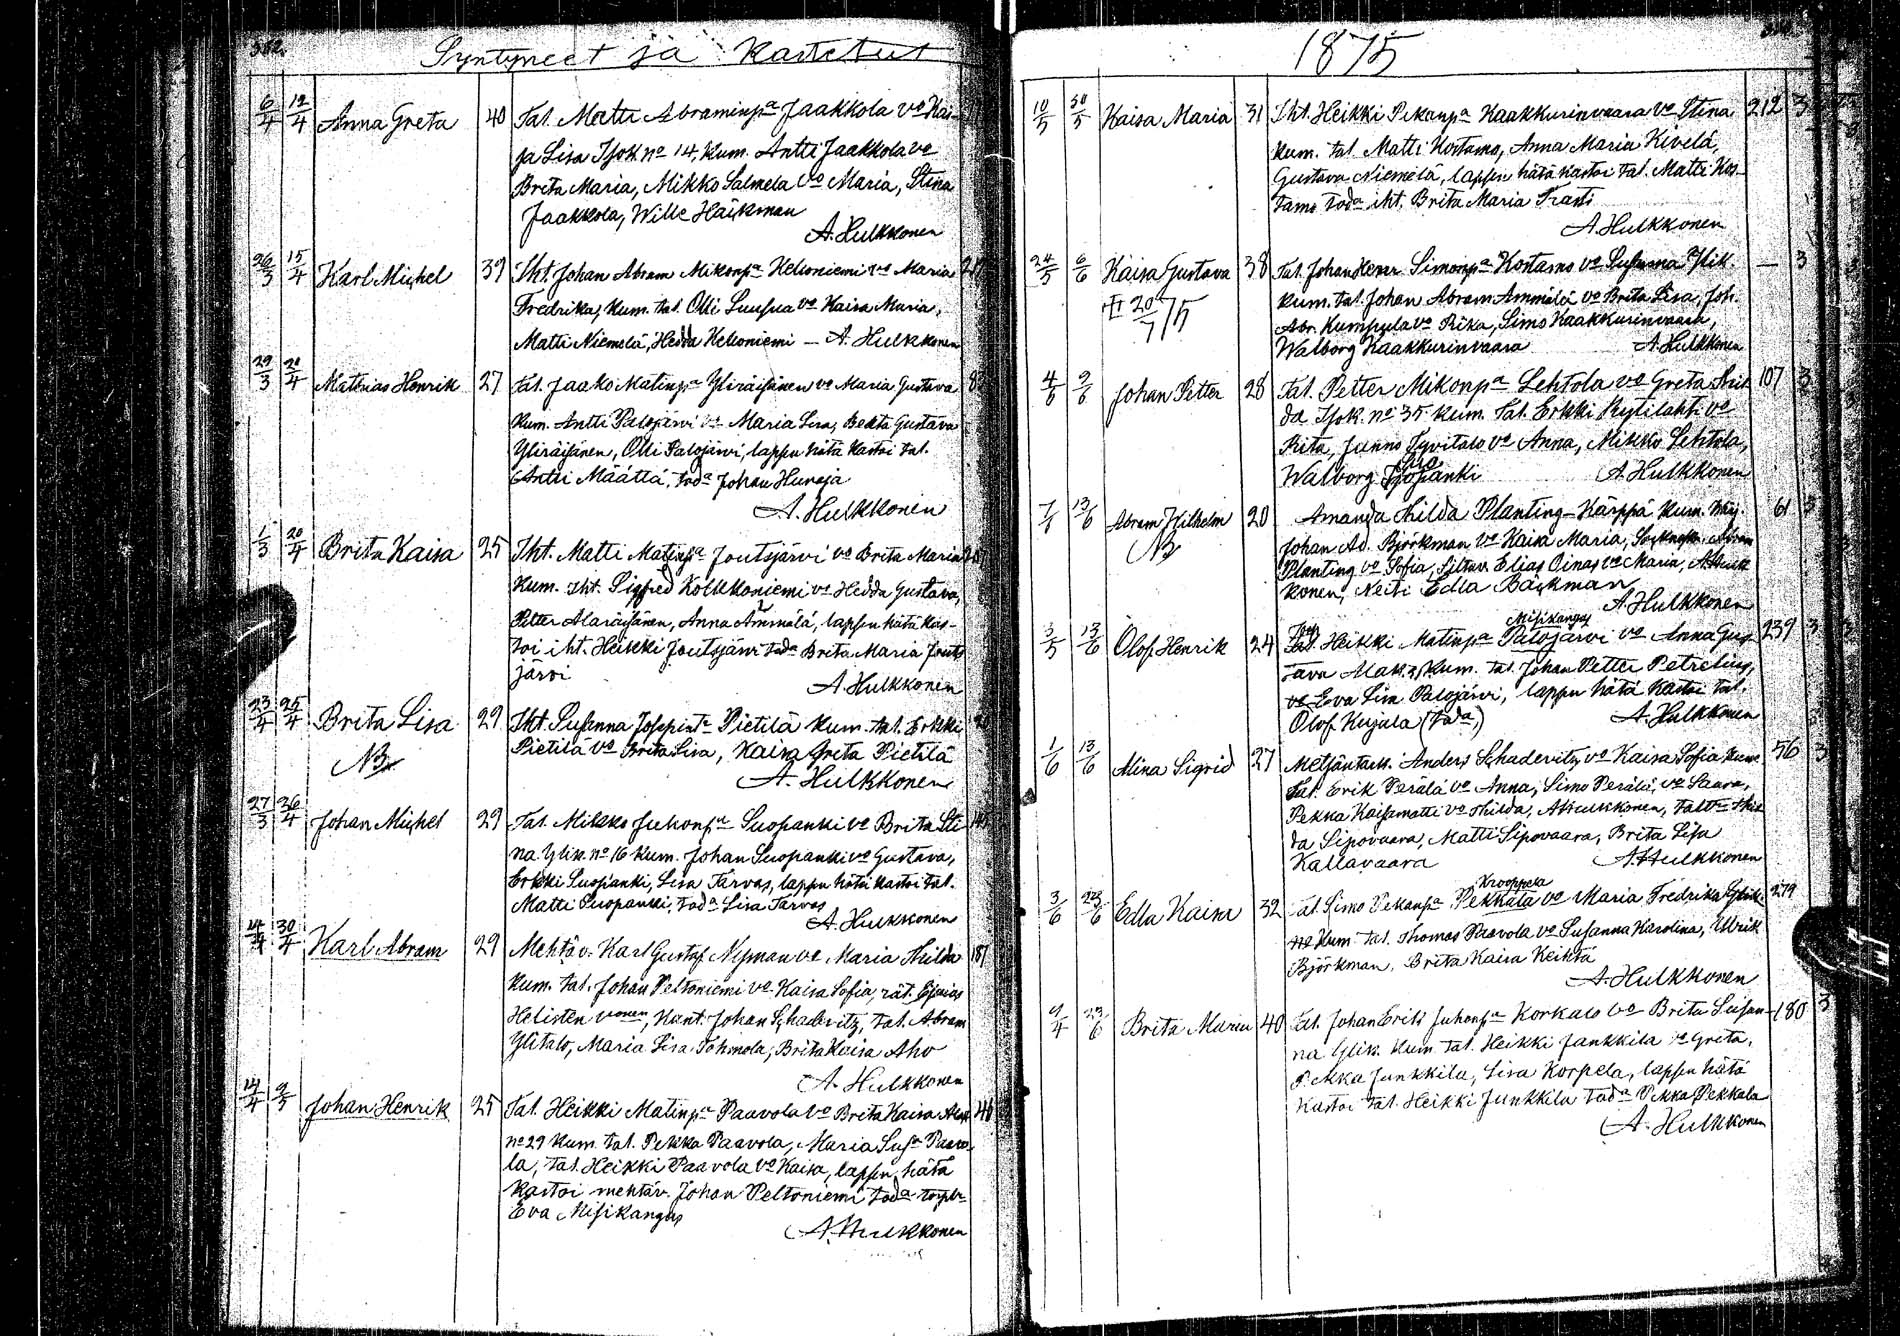 Syntyneet ja Kastetut
6/4 12/4 Anna Greta 40 Tal. Matti Abraminpa Jaakkola vo Kai-
ja Lisa Isok no 14, Kum. Antti Jaakkola vo
Brita Maria, Mikko Salmela vo Maria, Stina
Jaakkola, Wille Häikman
A. Hulkkonen
26/3 15/4 Karl Michel 39 Iht. Johan Abram Mikonpa Kelloniemi vo Maria
Fredrika, Kum. tal. Olli Luusua vo Kaisa Maria,
Matti Niemelä, Hedda Kelloniemi — A. Hulkkonen
29/3 21/4 Mathias Henrik 27 Tal. Jaako Matinpa Yliräisänen vo Maria Gustava
Kum. Antti Palojärvi vo Maria Lisa, Gustava
Yliräisänen, Olli Palojärvi, lapsen hätä kastoi tal.
Antti Määttä, toda Johan Hunaja
A. Hulkkonen
1/3 20/4 Brita Kaisa 25 Iht. Matti Matinpa Joutsjärvi vo Brita Maria
Kum. Iht. Sigfred Kolkkoniemi vo Hedda Gustava,
Petter Alaräisänen, Anna Ämmälä, lapsen hätä kas-
toi iht. Heikki Joutsjärvi toda Brita Maria Jouts
järvi
A. Hulkkonen
23/4 25/4 Brita Lisa 29 Iht. Susanna Josepinta Pietilä Kum. tal. Erkki
Pietilä vo Brita Lisa, Kaisa Greta Pietilä
NB
A. Hulkkonen
27/3 26/4 Johan Michel 29 Tal. Mikko Juhonpa Suopanki vo Brita Sti
na Ylik. no 16 Kum. Johan Suopanki vo Gustava,
Erkki Suopanki, Lisa Tarvas, lapsen hätä kastoi tal.
Matti Suopanki, toda Lisa Tarvas
A. Hulkkonen
14/4 30/4 Karl Abram 29 Mehtäv. Karl Gustaf Nyman vo Maria Thilda 181
Kum. tal. Johan Peltoniemi vo Kaisa Sofia, rät. Esaias
Helisten vonen, Kant. Johan Schadevitz, tal. Abram
Ylitalo, Maria Lisa Tohmola, Brita Kaisa Aho
A. Hulkkonen
14/4 9/5 Johan Henrik 25 Tal. Heikki Matinpa Paavola vo Brita Kaisa
no 29 Kum. tal. Pekka Paavola, Maria Susa Paavo-
la, tal. Heikki Paavola vo Kaisa, lapsen hätä
Kastoi mehtäv. Johan Peltoniemi toda
Eva Misikangas
A. Hulkkonen
1875
10/5 30/5 Kaisa Maria 31 Iht. Heikki Pekanpa Kaakkurinvaara vo Stina 212 3
Kum. tal. Matti Kostamo, Anna Maria Kivelä,
Gustava Niemelä, lapsen hätä kastoi tal. Matti Kos-
tamo toda iht. Brita Maria Frasti
A. Hulkkonen
24/5 6/6 Kaisa Gustava 38 Tal. Johan Simonpa Kostamo vo Susanna Ylik. — 3
20/7 75
Kum. tal. Johan Abram Ämmälä vo Brita Lisa, Joh.
Abr. Kumpula vo Rika, Simo Kaakkurinvaara,
Walborg Kaakkurinvaara A. Hulkkonen
4/6 9/6 Johan Petter 28 Tal. Petter Mikonpa Lehtola vo Greta Thil 107 3
da Isok. no 35 Kum. Tal. Erkki Kytilahti vo
Rita, Junno Tyvitalo vo Anna, Mikko Lehtola,
Walborg Lisa Suopanki A. Hulkkonen
13/6 Abram Wilhelm 20 Amanda Thilda Planting-Kärppä Kum. 61 3
NB
Johan Ad. Björkman vo Kaisa Maria, Abram
Planting vo Sofia, Siltav. Elias Oinas vo Maria, A. Hulk
konen, Neiti Edla Bäckman
A. Hulkkonen
Misikangas
3/5 13/6 Olof Henrik 24 Heikki Matinpa Palojärvi vo Anna Gus 239 3
tava Alak. Kum. tal. Johan Petter Petrelius,
vo Eva Lisa Palojärvi, lapsen hätä kastoi tal.
Olof Kujala (toda) A. Hulkkonen
1/6 13/6 Alina Sigrid 27 Metsäntark. Anders Schadevitz vo Kaisa Sofia Kum. 56 3
Tal. Erik Perälä vo Anna, Simo Perälä vo Saara,
Pekka Kaisamatti vo Thilda, A. Hulkkonen, Thil
da Sipovaara, Matti Sipovaara, Brita Lisa
Kallavaara A. Hulkkonen
Krooppela
3/6 23/6 Edla Kaisa 32 Tal. Simo Pekanpa Pekkala vo Maria Fredrika Ylik. 279
Kum. tal. Thomas Paavola vo Susanna Karolina, Ulrik
Björkman, Brita Kaisa Keihtä
A. Hulkkonen
9/4 23/6 Brita Maria 40 Tal. Johan Erik Juhonpa Korkalo vo Brita Susan- 180 3
na Ylik. Kum. tal. Heikki Junkkila vo Greta,
Pekka Junkkila, Lisa Korpela, lapsen hätä
Kastoi tal. Heikki Junkkila toda Pekka Pekkala
A. Hulkkonen